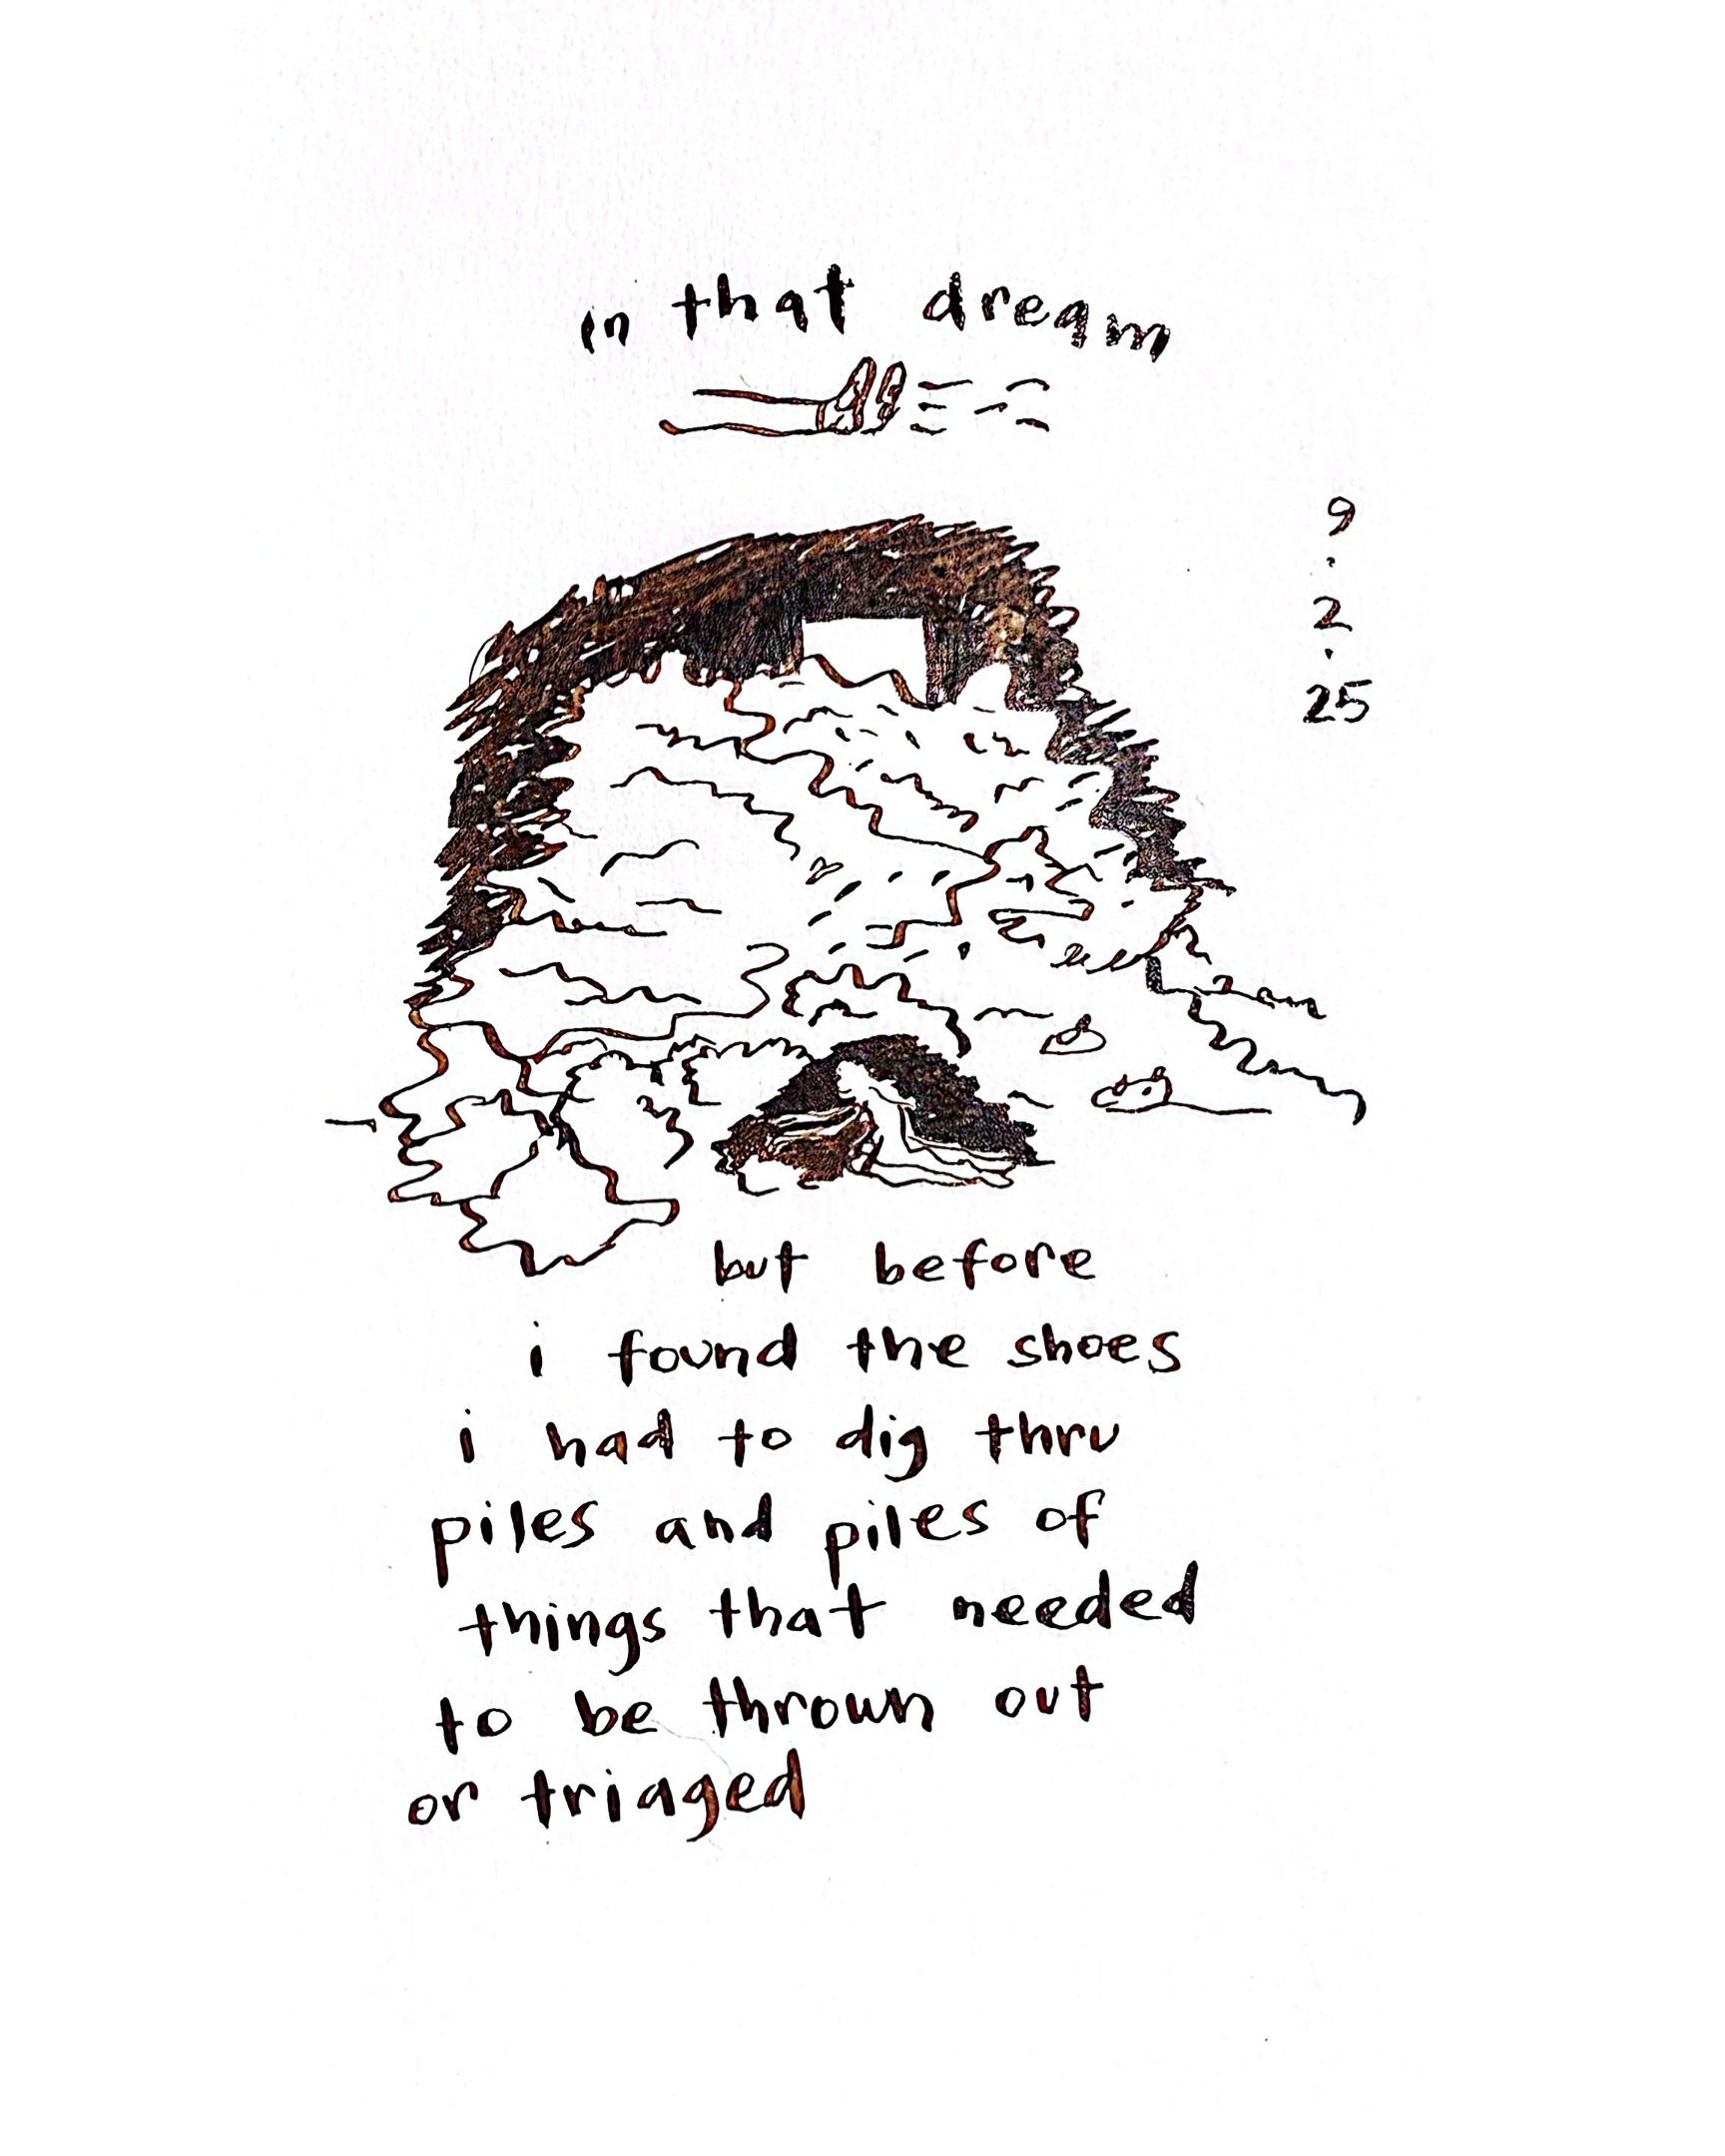 in that dream
9
.
2
.
25
but before
i found the shoes
i had to dig thru
piles and piles of
things that needed
to be thrown out
or triaged